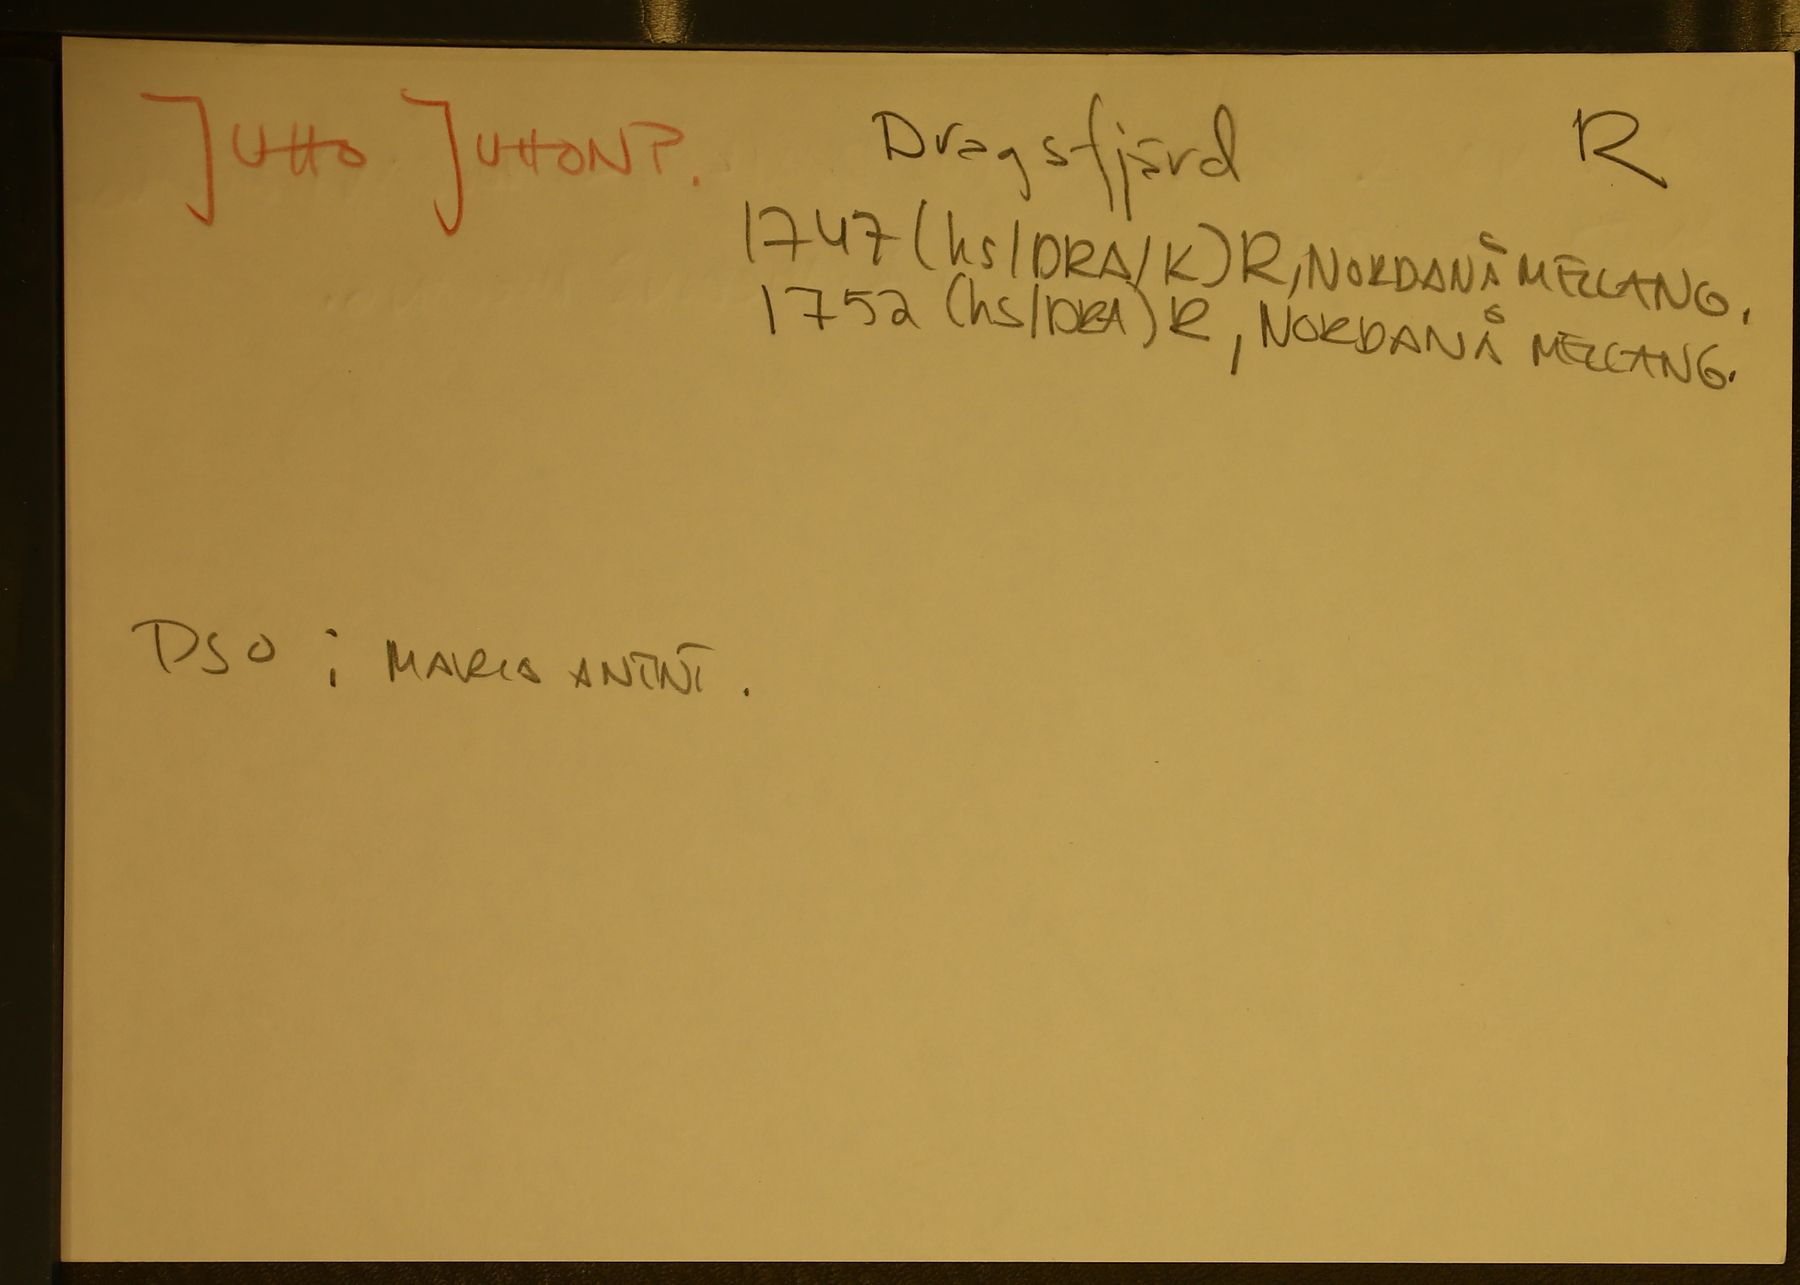 JUHO JUHONP. Dragsfjärd R
1747 (hs/DRA/K) R, NORDANÅ MELLANG.
1752 (hs/DRA) R, NORDANÅ MELLANG.
PSO : MARIA ANTINT.